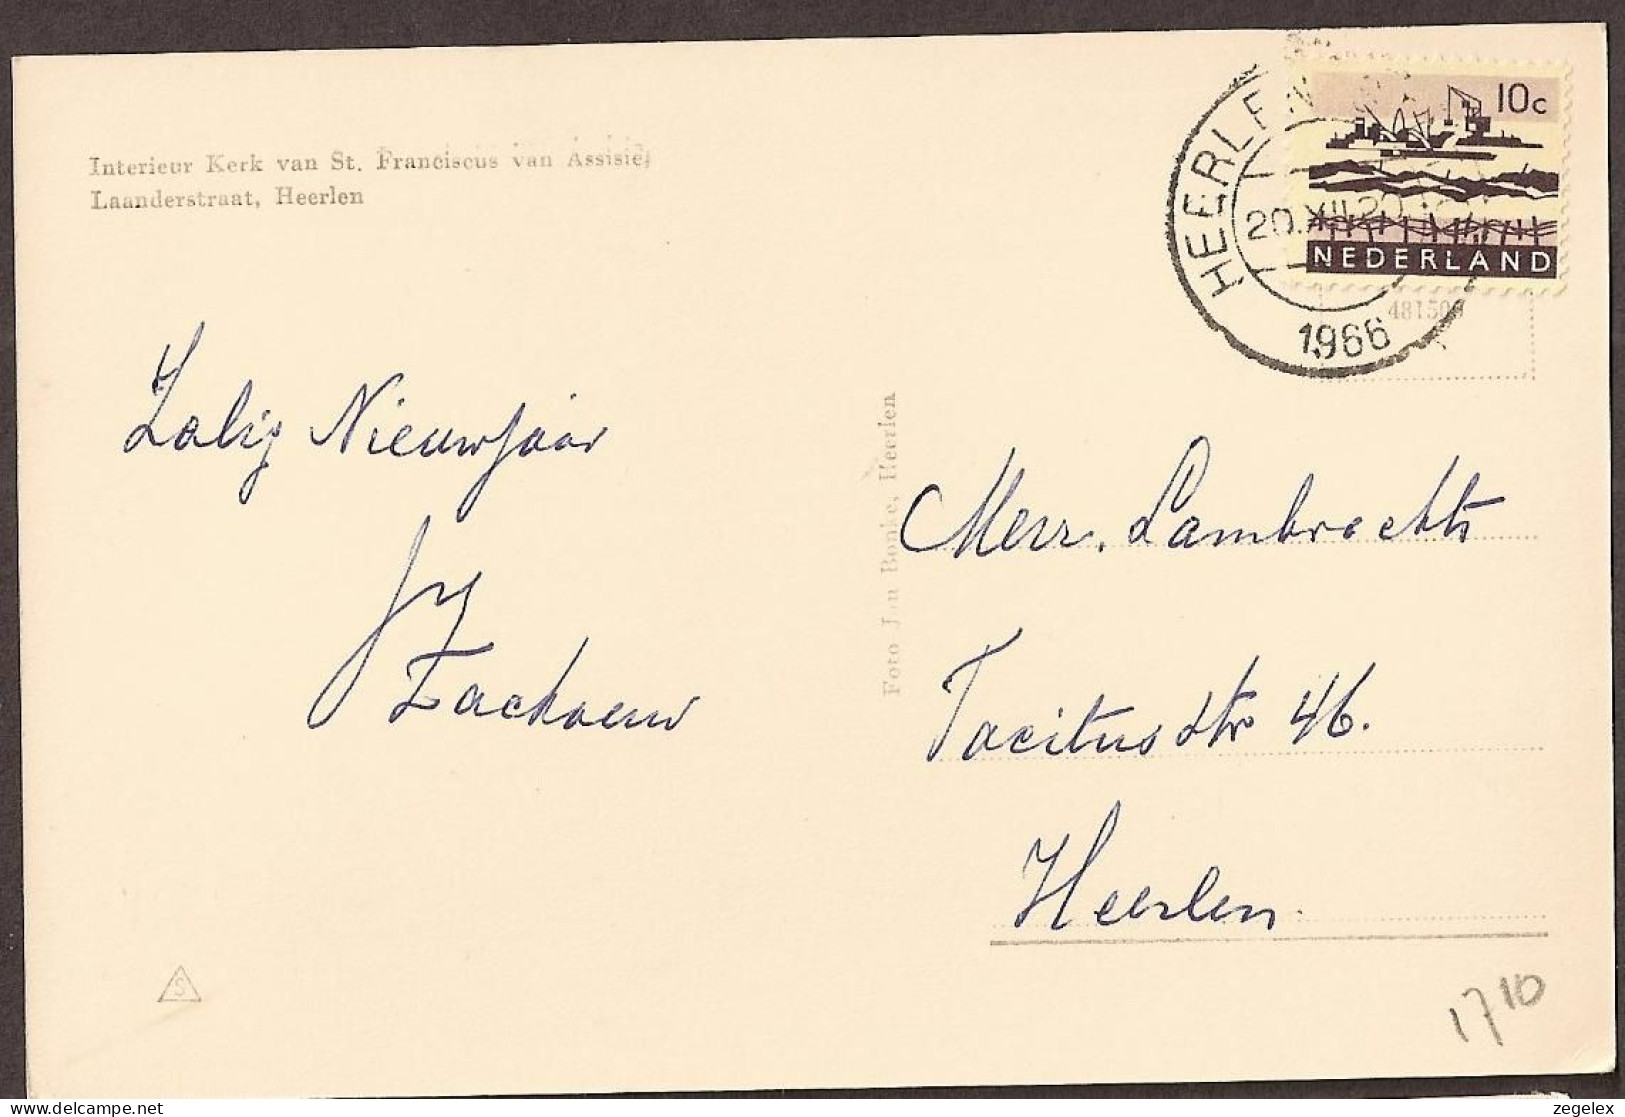 Interieur Kerk van St. Franciscus van Assisië,
Laanderstraat, Heerlen
HEERLEN
20.XII.20
1966
10c
NEDERLAND
Zalig Nieuwjaar
Foto Jan Bonke, Heerlen
Merr. Lambrechts
Tacitusstr 46.
Heerlen
S
1710
delcampe.net
zegelex